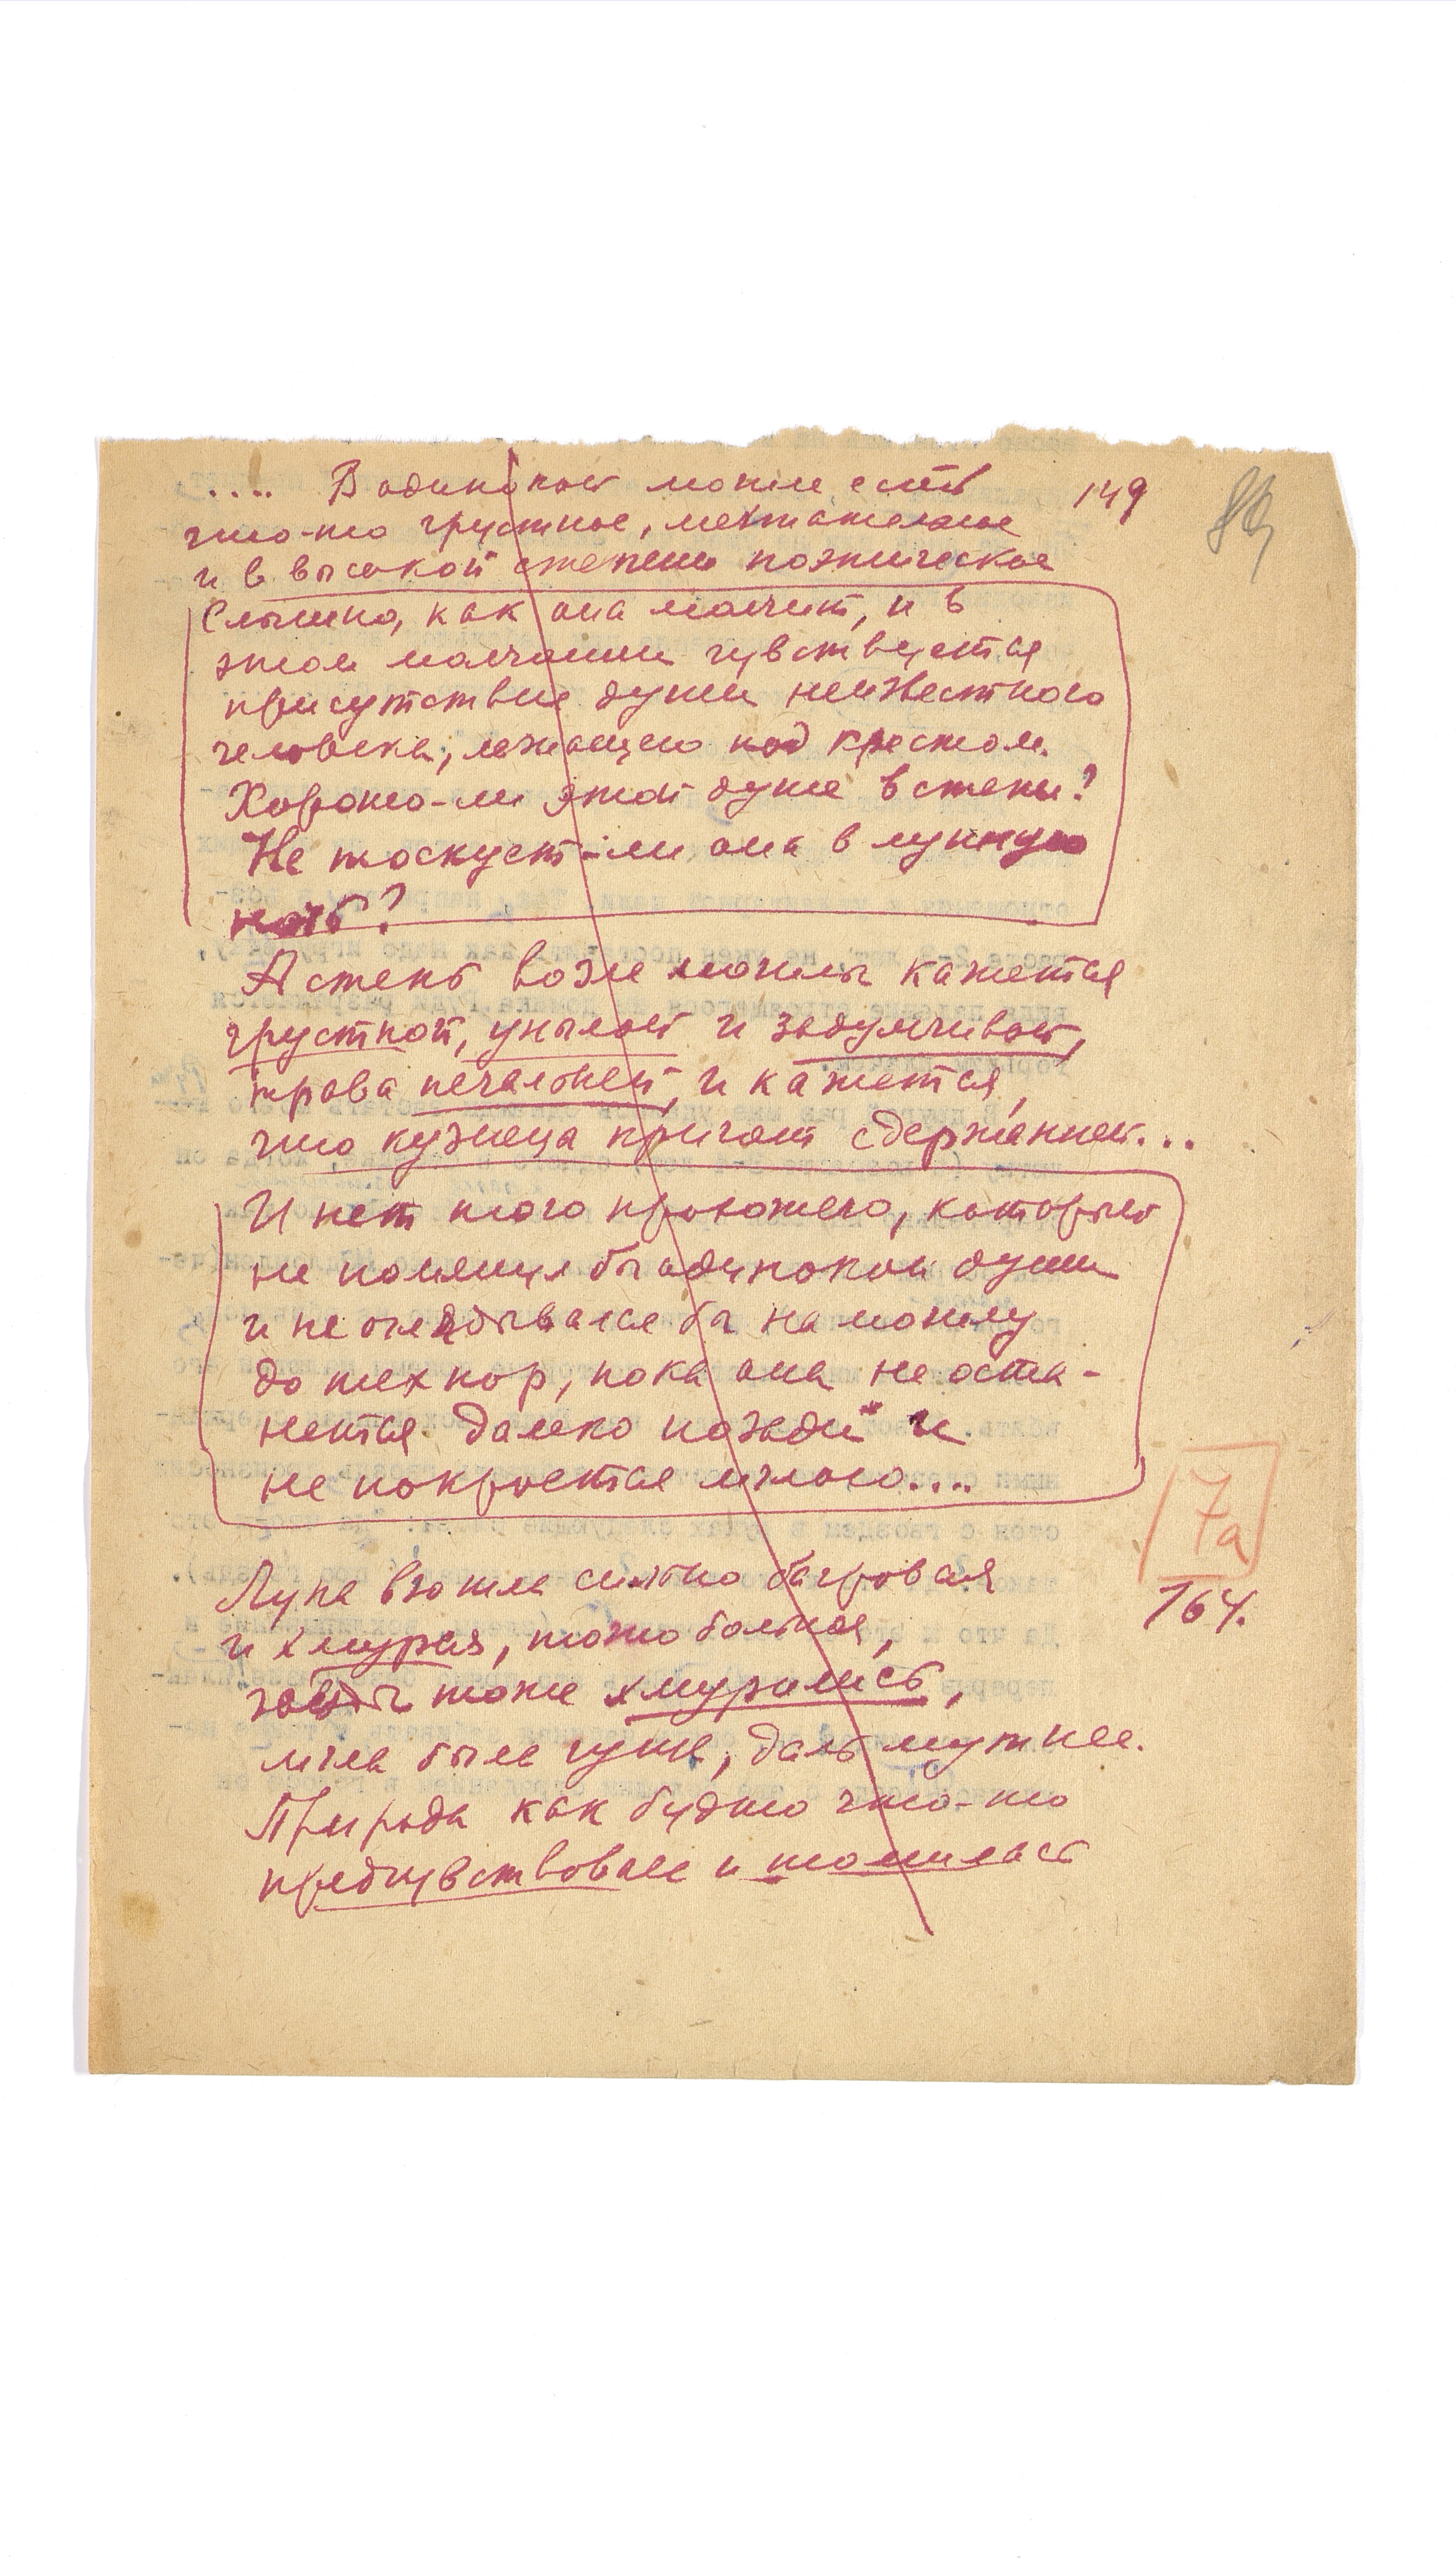 .... В одинокой могиле есть 149 89
что-то грустное, мечтательное
и в высокой степени поэтическое
Слышно, как она молчит, и в
этом молчании чувствуется
присутствие души неизвестного
человека, лежащего под крестом.
Хорошо-ли этой душе в степи?
Не тоскует-ли она в лунную
ночь?
А степь возле могилы кажется
грустной, унылой и задумчивой,
трава печальней, и кажется,
что кузнеца кричат сдержанней...
И нет того прохожего, который
не помянул бы одинокой души
и не оглядывался бы на могилу
до тех пор, пока она не оста-
нется далеко позади и
не покроется мглою....
7а
Луна взошла сильно багровая
164.
и хмурая, точно больная,
звезды тоже хмурились,
мгла была гуще, даль мутнее.
Природа как будто что-то
предчувствовала и томилась